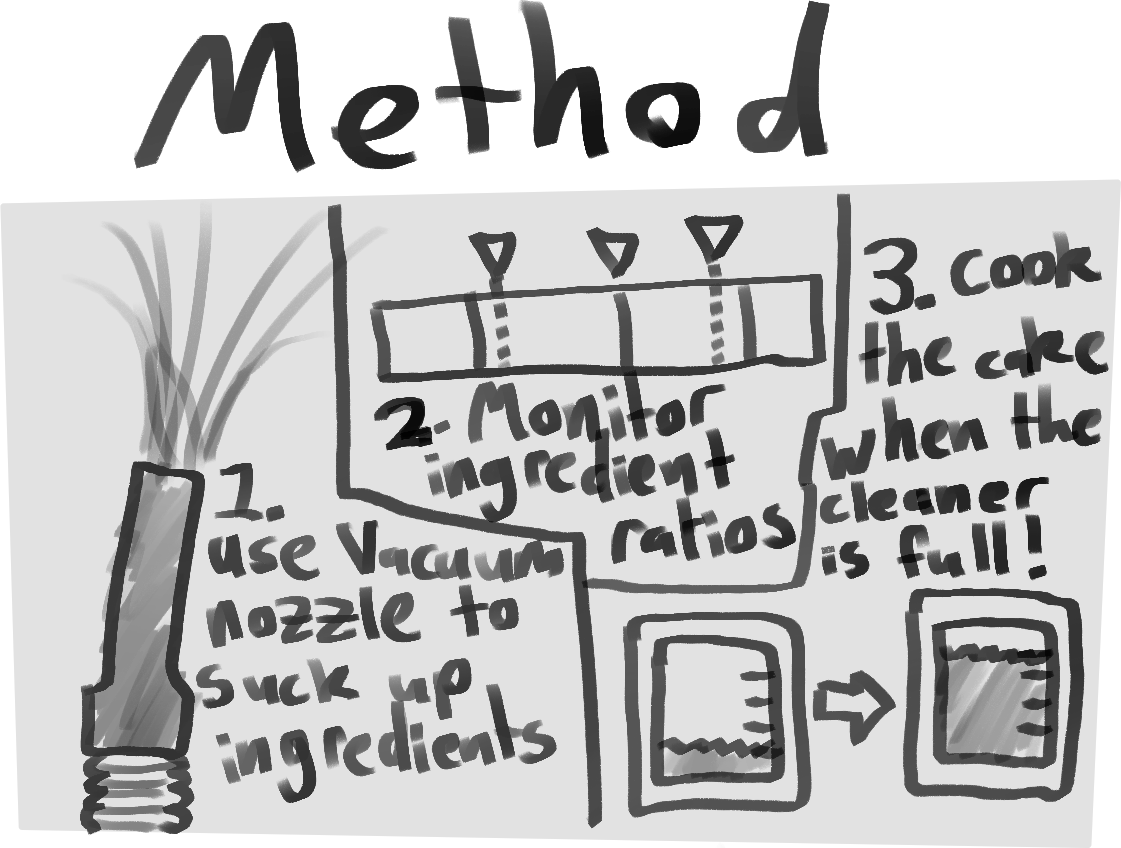 Method
1.
use Vacuum
nozzle to
suck up
ingredients
2. Monitor
ingredient
ratios
3. Cook
the cake
when the
cleaner
is full!